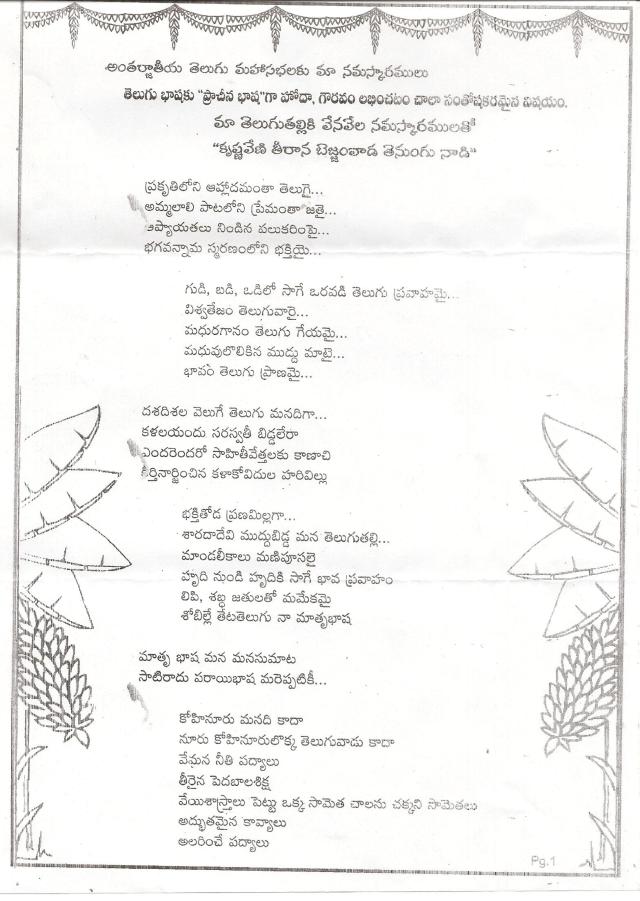 అంతర్జాతీయ తెలుగు మహాసభలకు మా నమస్కారములు
తెలుగు భాషకు "ప్రాచీన భాష"గా హోదా, గౌరవం లభించటం చాలా సంతోషకరమైన విషయం.
మా తెలుగుతల్లికి వేనవేల నమస్కారములతో
"కృష్ణవేణి తీరాన బెజ్జంవాడ తెనుంగు నాడి"
ప్రకృతిలోని ఆహ్లాదమంతా తెలుగై...
అమ్మలాలి పాటలోని ప్రేమంతా జతై...
ఆప్యాయతలు నిండిన పలుకరింపై...
భగవన్నామ స్మరణంలోని భక్తియై...
గుడి, బడి, ఒడిలో సాగే ఒరవడి తెలుగు ప్రవాహమై...
విశ్వతేజం తెలుగువారై...
మధురగానం తెలుగు గేయమై...
మధువులొలికిన ముద్దు మాటై...
భావం తెలుగు ప్రాణమై...
దశదిశల వెలుగే తెలుగు మనదిగా...
కళలయందు సరస్వతీ బిడ్డలేరా
ఎందరెందరో సాహితీవేత్తలకు కాణాచి
కీర్తినార్జించిన కళాకోవిదుల హరివిల్లు
భక్తితోడ ప్రణమిల్లగా...
శారదాదేవి ముద్దుబిడ్డ మన తెలుగుతల్లి...
మాండలీకాలు మణిపూసలై
హృది నుండి హృదికి సాగే భావ ప్రవాహం
లిపి, శబ్ధ జతులతో మమేకమై
శోభిల్లే తేటతెలుగు నా మాతృభాష
మాతృ భాష మన మనసుమాట
సాటిరాదు పరాయిభాష మరెప్పటికీ...
కోహినూరు మనది కాదా
నూరు కోహినూరులొక్క తెలుగువాడు కాదా
వేమన నీతి పద్యాలు
తీరైన పెదబాలశిక్ష
వేయిశాస్త్రాలు పెట్టు ఒక్క సామెత చాలను చక్కని సామెతలు
అద్భుతమైన కావ్యాలు
అలరించే పద్యాలు
Pg.1